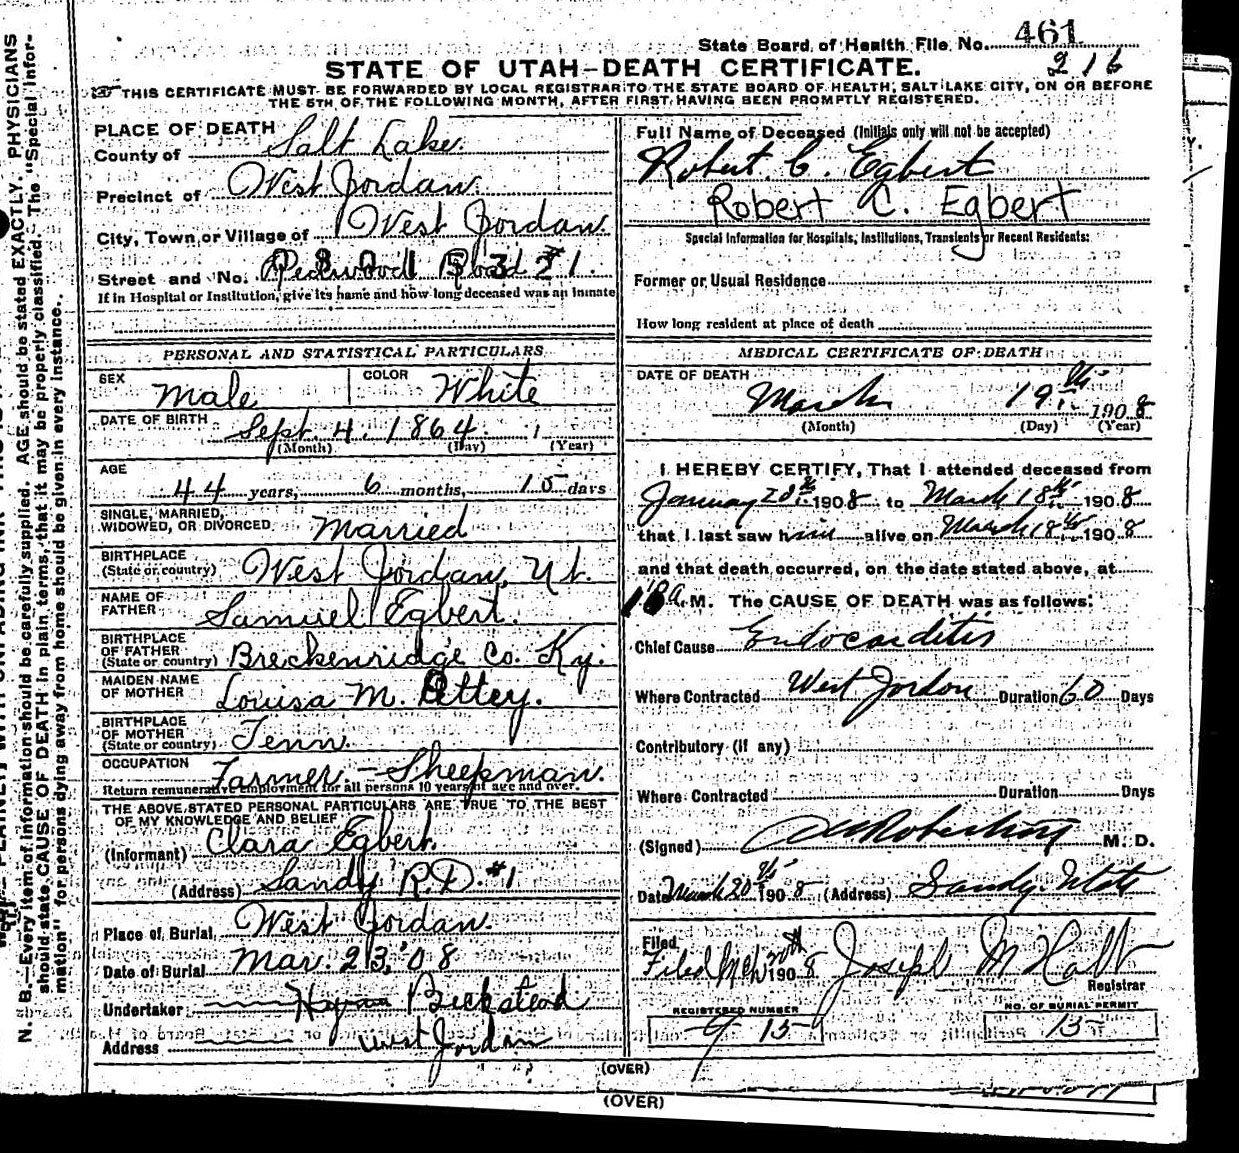 State Board of Health File No. 461
216
STATE OF UTAH–DEATH CERTIFICATE.
THIS CERTIFICATE MUST BE FORWARDED BY LOCAL REGISTRAR TO THE STATE BOARD OF HEALTH, SALT LAKE CITY, ON OR BEFORE
THE 5TH OF THE FOLLOWING MONTH, AFTER FIRST HAVING BEEN PROMPTLY REGISTERED.
PLACE OF DEATH
County of Salt Lake.
Precinct of West Jordan.
City, Town or Village of West Jordan.
Street and No. Redwood Road
If in Hospital or Institution, give its name and how long deceased was an inmate
PERSONAL AND STATISTICAL PARTICULARS
SEX Male COLOR White
DATE OF BIRTH Sept. 4. 1864.
(Month) (Day) (Year)
AGE
44 years, 6 months, 15 days
SINGLE, MARRIED,
WIDOWED, OR DIVORCED Married
BIRTHPLACE
(State or country) West Jordan, Ut.
NAME OF
FATHER Samuel Egbert.
BIRTHPLACE
OF FATHER
(State or country) Breckenridge Co. Ky.
MAIDEN NAME
OF MOTHER Louisa M.
BIRTHPLACE
OF MOTHER
(State or country) Tenn.
OCCUPATION Farmer. – Sheepman.
Return remunerative employment for all persons 10 years of age and over.
THE ABOVE STATED PERSONAL PARTICULARS ARE TRUE TO THE BEST
OF MY KNOWLEDGE AND BELIEF
(Informant) Clara Egbert.
(Address) Sandy R.D. #1
Place of Burial West Jordan.
Date of Burial Mar. 23, '08
Undertaker Beckstead
Address West Jordan
Full Name of Deceased (Initials only will not be accepted)
Robert. C. Egbert
Robert C. Egbert
Special Information for Hospitals, Institutions, Transients or Recent Residents:
Former or Usual Residence
How long resident at place of death
MEDICAL CERTIFICATE OF DEATH
DATE OF DEATH
March 19th 1908
(Month) (Day) (Year)
I HEREBY CERTIFY, That I attended deceased from
January 20th 1908 to March 18th 1908
that I last saw him alive on March 18th 1908
and that death occurred, on the date stated above, at
a.M. The CAUSE OF DEATH was as follows:
Chief Cause Endocarditis
Where Contracted West Jordon Duration 60 Days
Contributory (if any)
Where Contracted Duration Days
(Signed) M. D.
Date March 20th 1908 (Address) Sandy. Utah
Filed
Filed Mch 20th 1908 Joseph M Holt
Registrar
REGISTERED NUMBER
NO. OF BURIAL PERMIT
15
(OVER)
(OVER)
N. B.—Every item of information should be carefully supplied. AGE should be stated EXACTLY. PHYSICIANS
should state CAUSE OF DEATH in plain terms, that it may be properly classified. The "Special Infor-
mation" for persons dying away from home should be given in every instance.